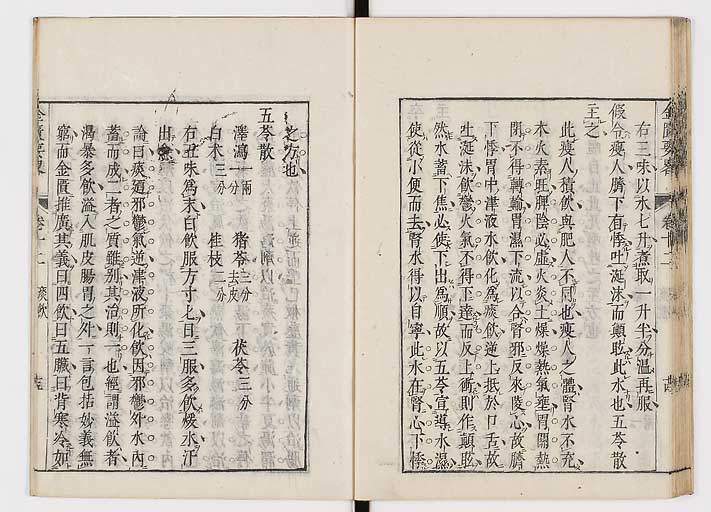 右三味以水七升煮取一升半分溫再服
假令瘦人臍下有悸吐涎沫而顛眩此水也五苓散
主之
此瘦人積飲與肥人不同也瘦人之體腎水不充
木火素旺脾陰必虛火炎土燥燥熱氣壅胃關熱
閉不得轉輸胃濕下流以合腎邪反來陵心故臍
下悸胃中津液水飲化為痰飲逆上抵於口舌故
吐涎沫飲鬱火氣不得下達而反上衝則作顛眩
然水蓄下焦必使下出為順故以五苓宣導水濕
使從小便而去腎水得以自寧此水在腎心下悸
之方也
五苓散
澤瀉一兩一分 猪苓三分去皮 茯苓三分
白朮三分 桂枝二分
右五味為末白飲服方寸匕日三服多飲煖水汗
出
論曰痰迺邪鬱氣逆津液所化飲因邪鬱外水內
蓄而成二者之質雖別其治則一也經謂溢飲者
渴暴多飲溢入肌皮腸胃之外一言包括妙義無
窮而金匱推廣其義曰四飲曰五臟曰背寒冷如
金匱要畧 卷十二 痰飲